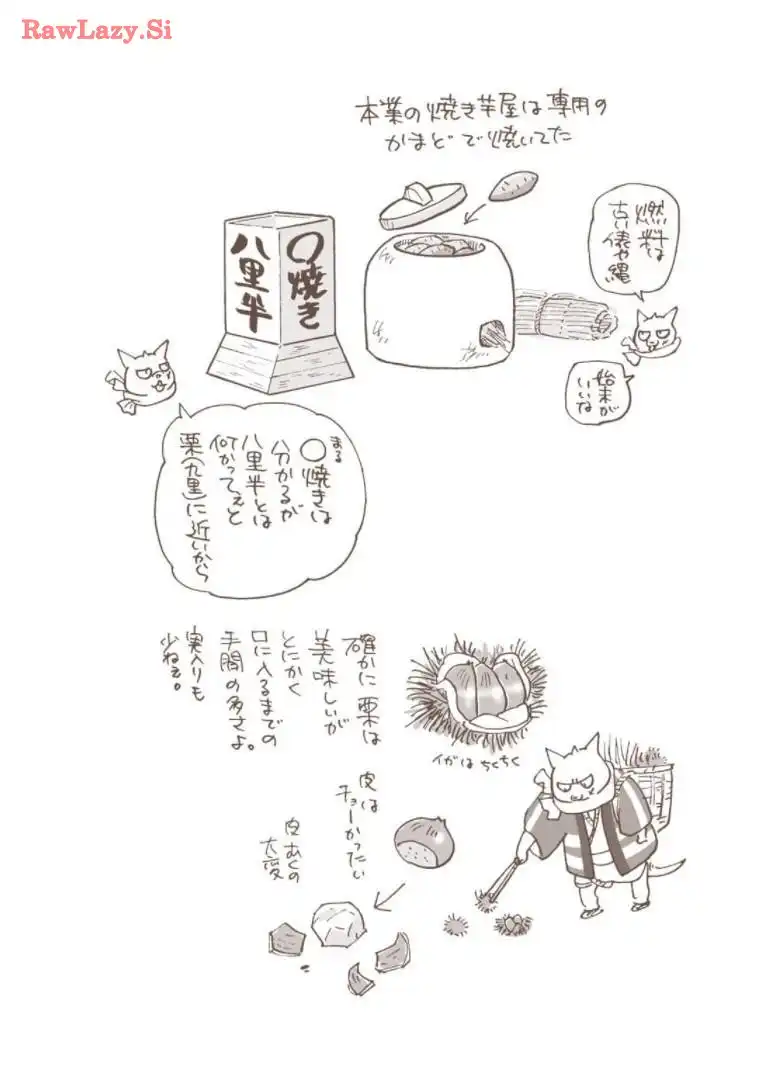 RawLazy.Si
本業の焼き芋屋は専用の
かまどで焼いてた
燃料は
古い俵や縄
始末が
いいな
〇焼き
八里半
まる
〇焼きは
分かるが
八里半とは
何かってえと
栗(九里)に近いから
確かに栗は
美味しいが
とにかく
口に入るまでの
手間の多さよ。
実入りも
少ねえ。
イガはちくちく
皮は
チョーかったい
皮むくの
大変